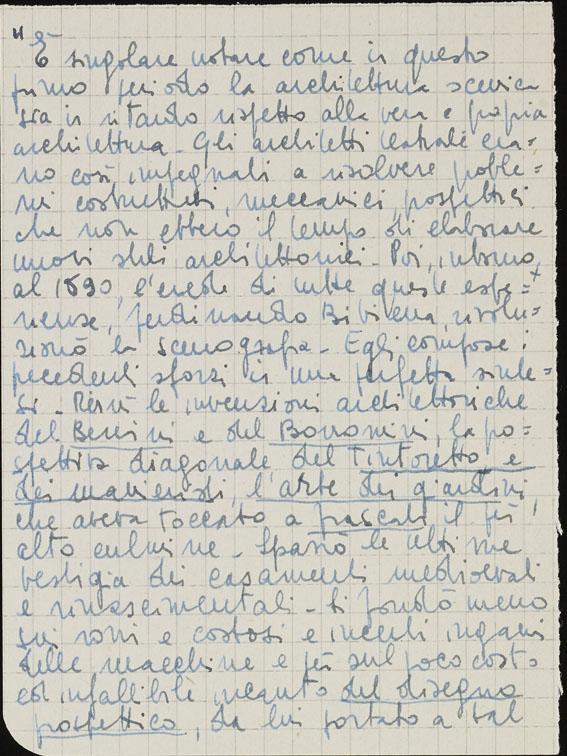 4
È singolare notare come in questo
primo periodo la architettura scenica
sia in ritardo rispetto alla vera e propria
architettura - Gli architetti teatrali era=
no così impegnati a risolvere proble=
mi costruttivi, meccanici, prospettici
che non ebbero il tempo di elaborare
nuovi stili architettonici - Poi, intorno
al 1690, l'erede di tutte queste espe=
rienze, Ferdinando Bibiena, rivolu=
zionò la scenografia - Egli compose i
precedenti sforzi in una perfetta sinte=
si - Riunì le invenzioni architettoniche
del Bernini e del Borromini, la pro=
spettiva diagonale del Tintoretto e
dei manieristi, l'arte dei giardini
che aveva toccato a Frascati, il più
alto culmine - Spazzò le ultime
vestigia dei casamenti medioevali
e rinascimentali - Si fondò meno
sui rozzi e costosi e incerti inganni
delle macchine e più sul poco costo=
ed infallibile incanto del disegno
prospettico, da lui portato a tal